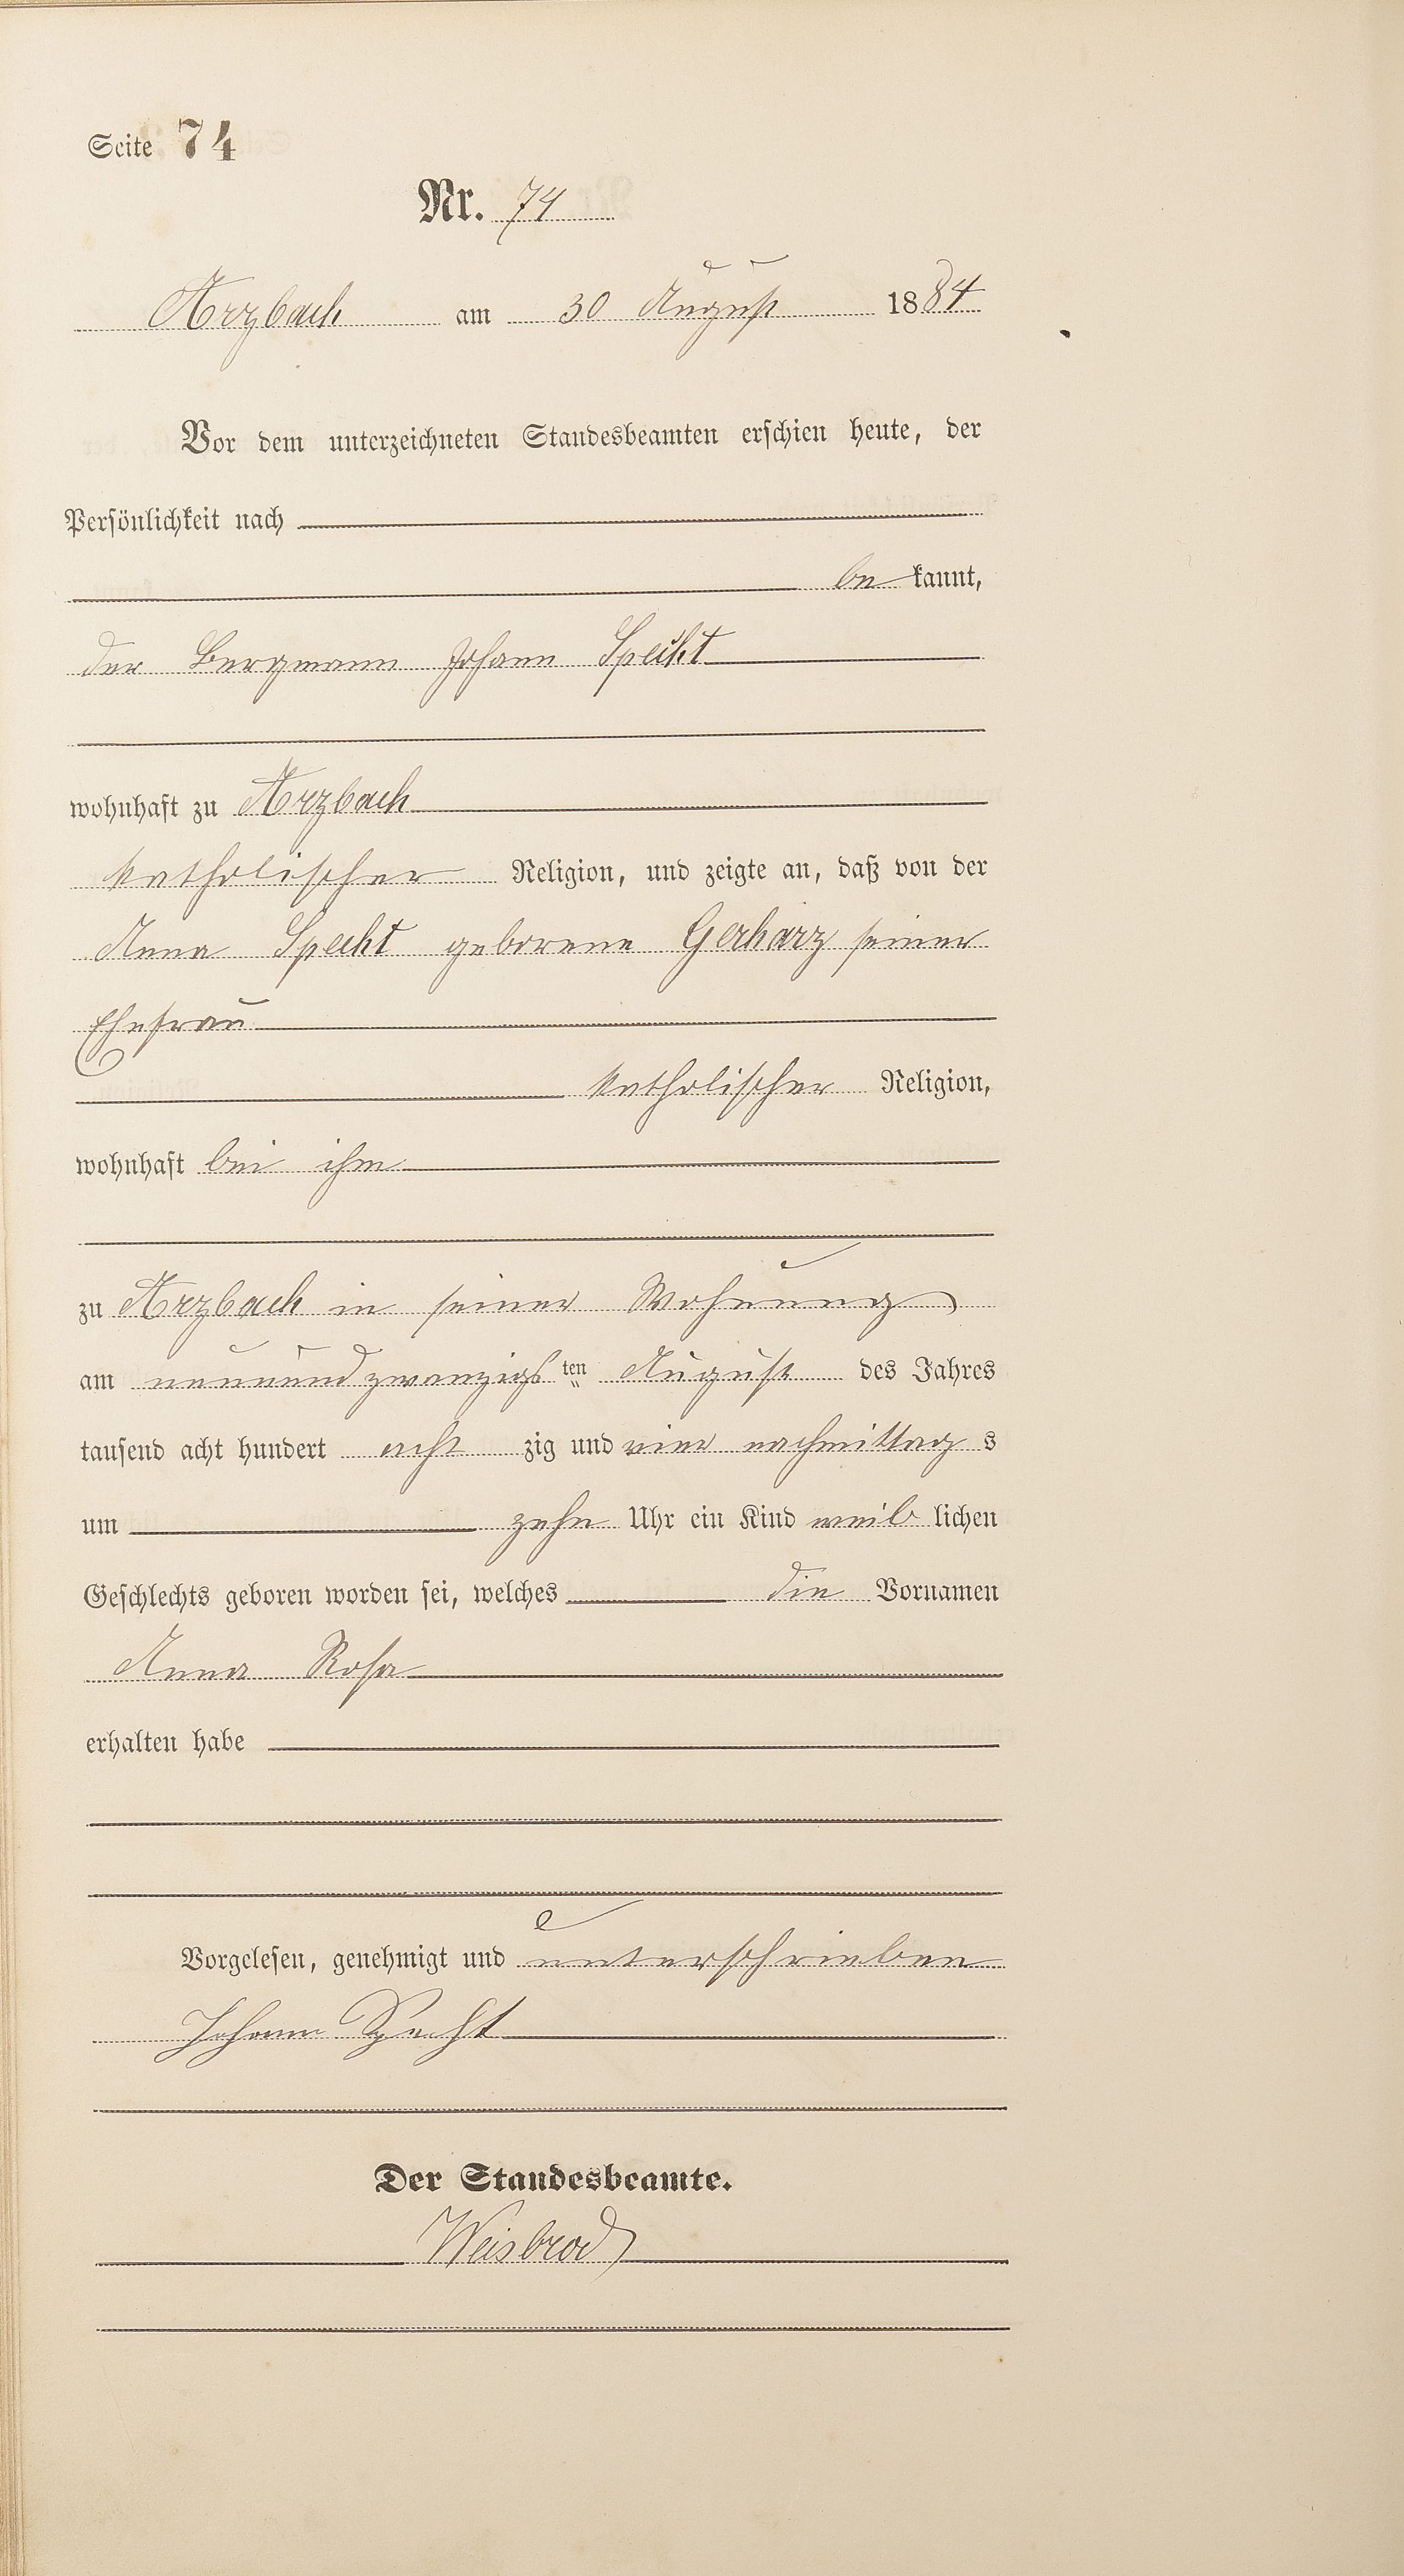 Seite 74
Nr. 74
Arzbach am 30 August 1884
Vor dem unterzeichneten Standesbeamten erschien heute, der
Persönlichkeit nach
be kannt,
der Bergmann Johann Specht
wohnhaft zu Arzbach
katholischer Religion, und zeigte an, daß von der
Anna Specht geborene Gerharz seiner
Ehefrau
katholischer Religion,
wohnhaft bei ihm
zu Arzbach in seiner Wohnung
am neunundzwanzigsten August des Jahres
tausend acht hundert acht zig und vier nachmittag s
um zehn Uhr ein Kind weib lichen
Geschlechts geboren worden sei, welches die Vornamen
Anna Rosa
erhalten habe
Vorgelesen, genehmigt und unterschrieben
Johann Specht
Der Standesbeamte.
Weisbrod